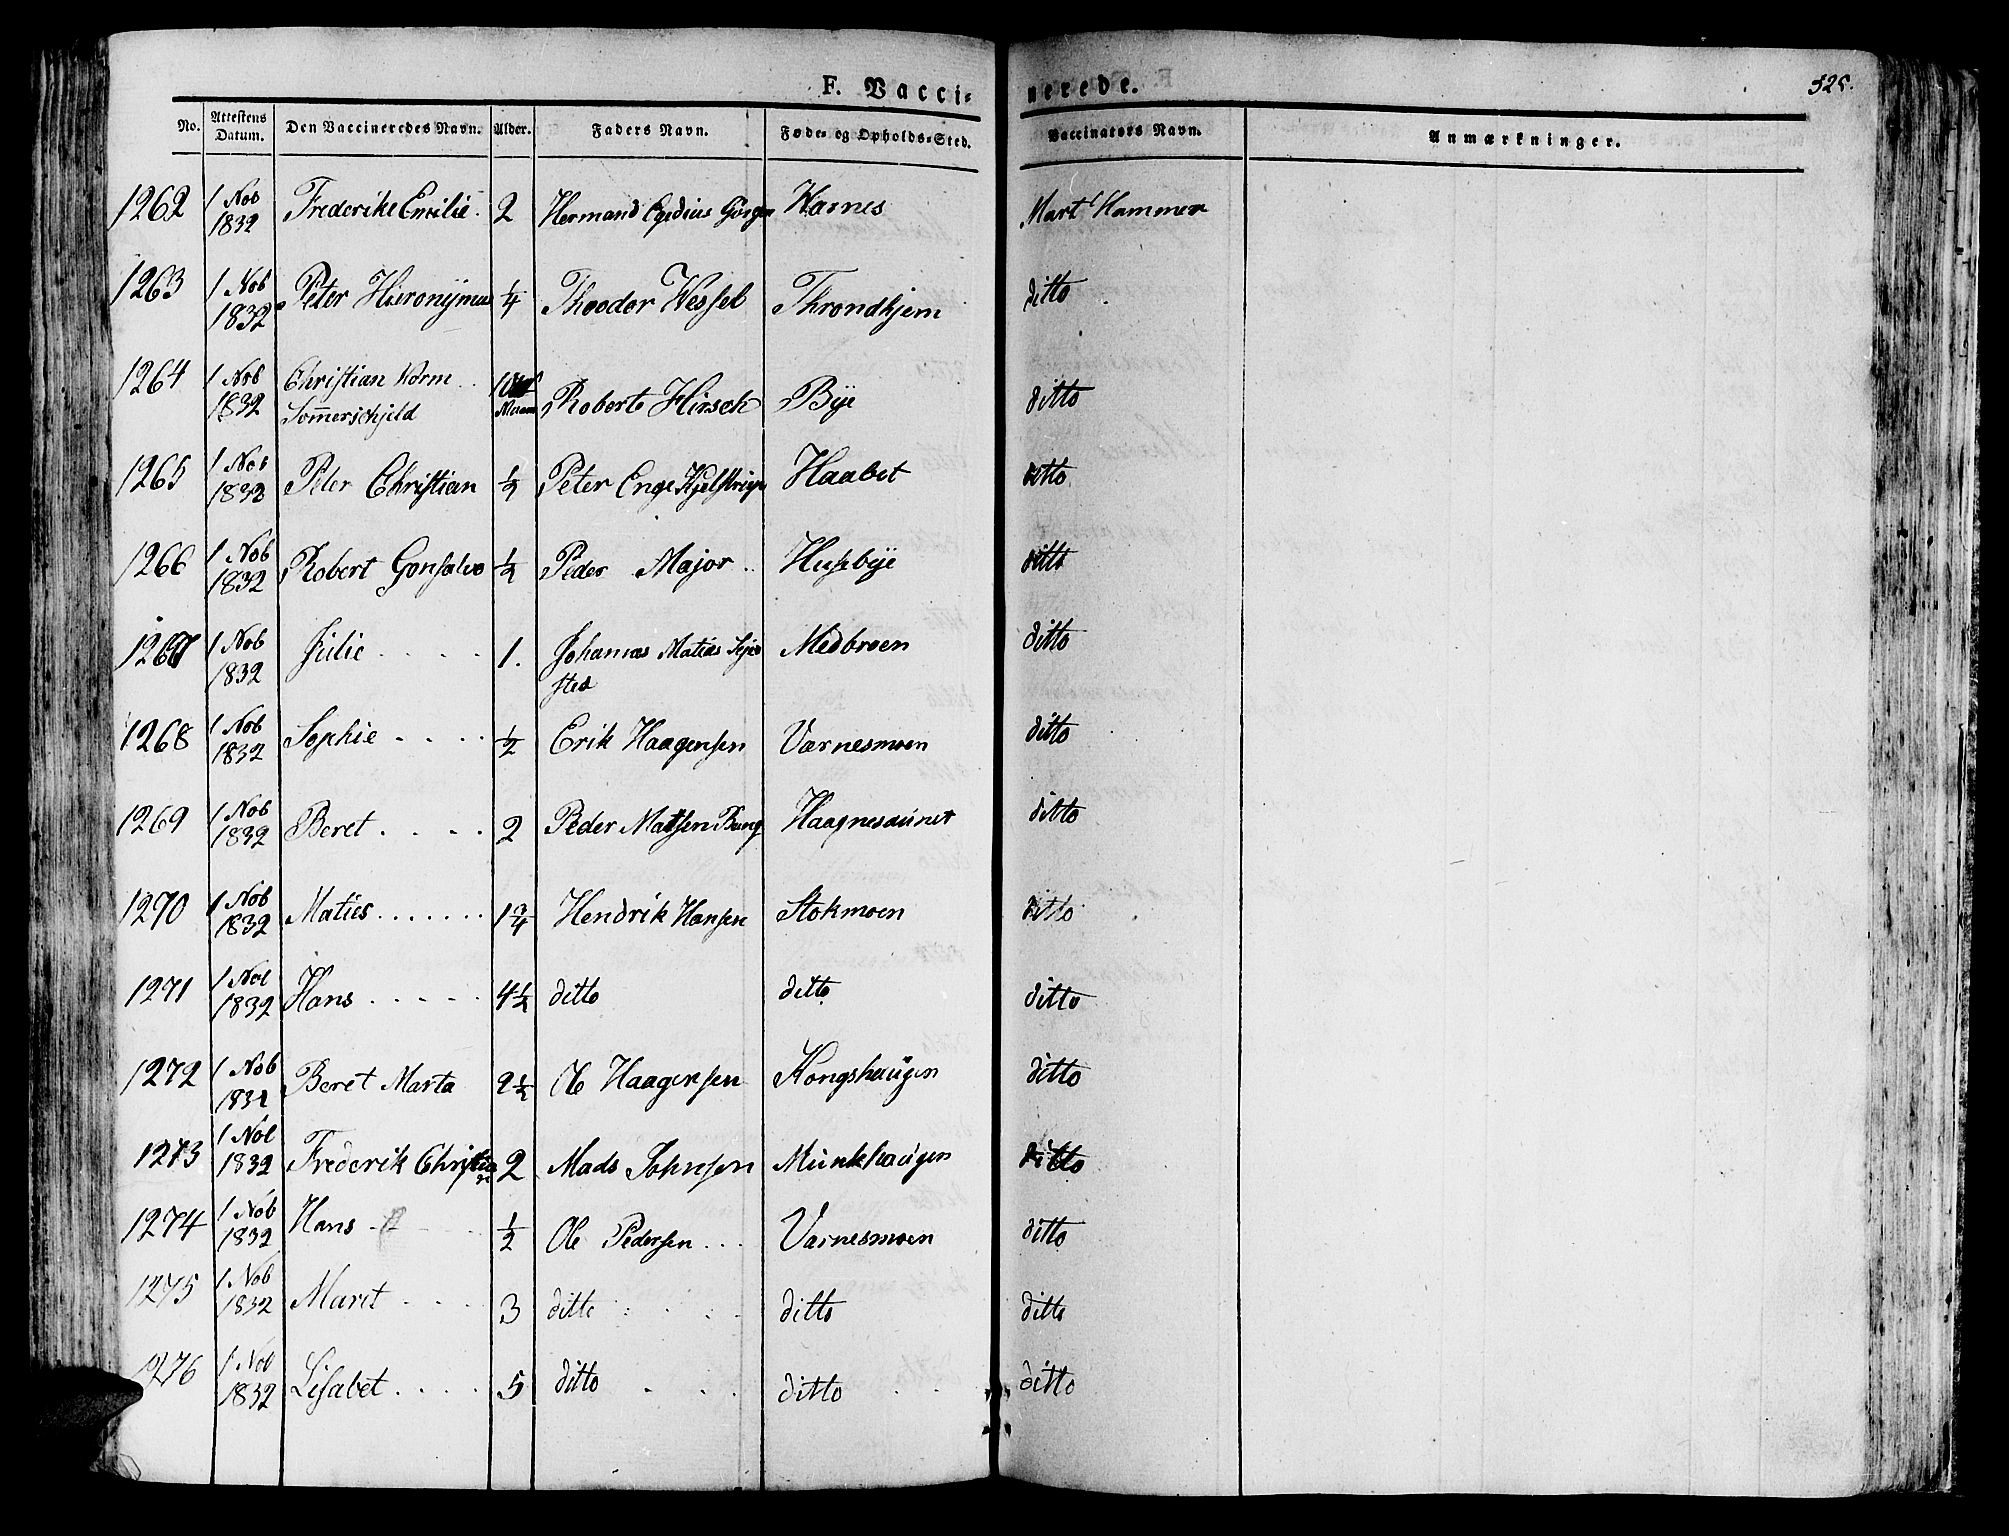 F. Vaccinerede.
525.
No. Attestens Datum. Den Vaccineredes Navn. Alder. Faders Navn. Føde- og Opholds-Sted. Vaccinators Navn. Anmærkninger.
1262 1 Nob 1832 Frederike Emilie. 2 Hermand Egedius Harnes Mart Hammer
1263 1 Nob 1832 Peter Hieronymus 1/4 Theodor Wessel Throndhjem ditto
1264 1 Nob 1832 Christian Worm Sommerschjeld Roberto Hirsch Bye ditto
1265 1 Nob 1832 Peter Christian 1/2 Peter Enge Haabet ditto
1266 1 Nob 1832 Robert Gonsalvo 1/2 Peder Major Husebye ditto
1267 1 Nob 1832 Julie 1. Johannes Matias Medbroen ditto
1268 1 Nob 1832 Sophie 1/2 Erik Haagensen Varnesmoen ditto
1269 1 Nob 1832 Beret 2 Peder Matsen Bang Haagnesaunet ditto
1270 1 Nob 1832 Maties 1 3/4 Hendrik Hansen Stokmoen ditto
1271 1 Nob 1832 Hans 4 1/2 ditto ditto ditto
1272 1 Nob 1832 Beret Marta 2 1/2 Ole Haagensen Kongshaugen ditto
1273 1 Nob 1832 Frederik Christian 2 Mads Johnsen Munkhaugen ditto
1274 1 Nob 1832 Hans 1/2 Ole Pedersen Varnesmoen ditto
1275 1 Nob 1832 Marit 3 ditto ditto ditto
1276 1 Nob 1832 Lisabet 5 ditto ditto ditto